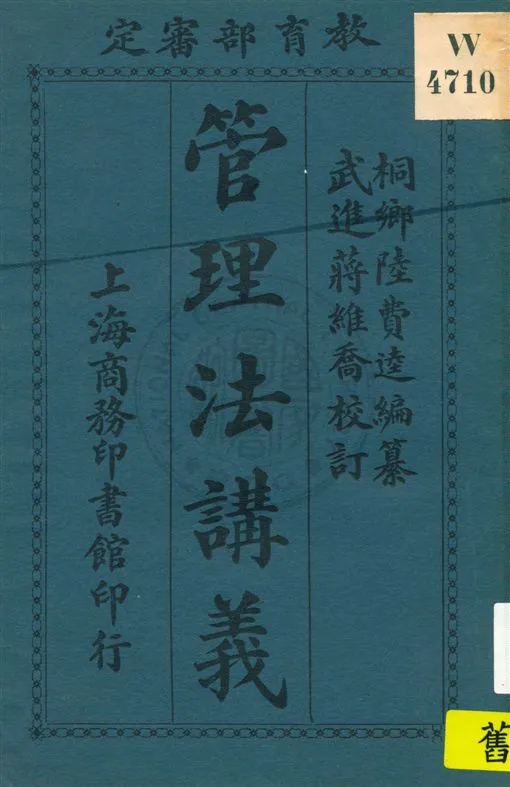 教育部審定
W
4710
桐鄉陸費逵編纂
武進蔣維喬校訂
管理法講義
上海商務印書館印行
舊